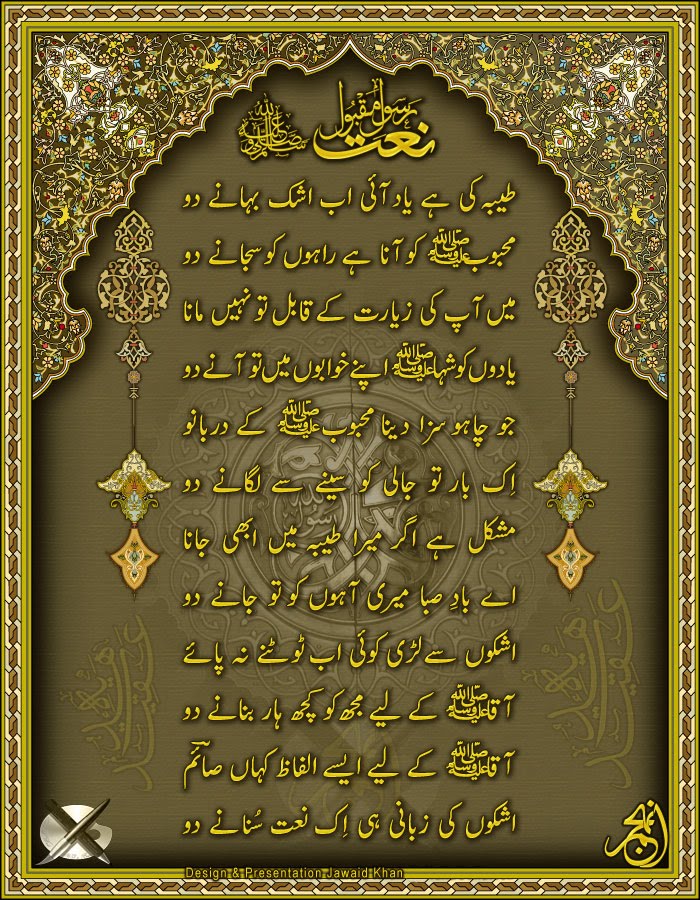 نعت رسول مقبول ﷺ
طیبہ کی ہے یاد آئی اب اشک بہانے دو
محبوب ﷺ کو آنا ہے راہوں کو سجانے دو
میں آپ کی زیارت کے قابل تو نہیں مانا
یادوں کو شہا ﷺ اپنے خوابوں میں تو آنے دو
جو چاہو سزا دینا محبوب ﷺ کے دربانو
اِک بار تو جالی کو سینے سے لگانے دو
مشکل ہے اگر میرا طیبہ میں ابھی جانا
اے بادِ صبا میری آہوں کو تو جانے دو
اشکوں سے لڑی کوئی اب ٹوٹنے نہ پائے
آقا ﷺ کے لیے مجھ کو کچھ ہار بنانے دو
آقا ﷺ کے لیے ایسے الفاظ کہاں صائمؔ
اشکوں کی زبانی ہی اِک نعت سُنانے دو
Design & Presentation Jawaid Khan